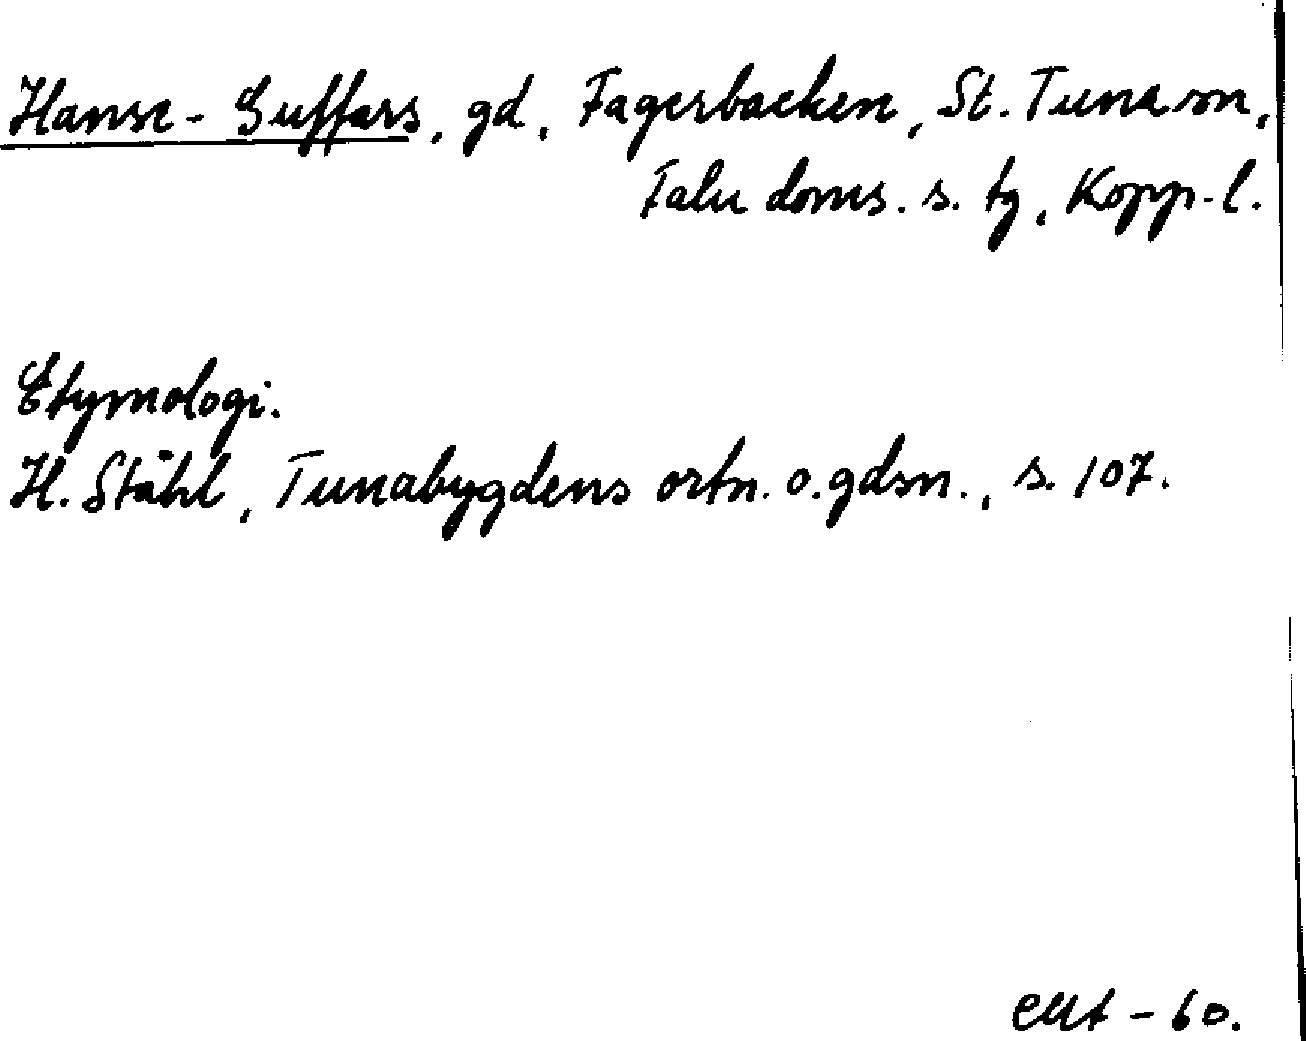 Hanse-Guffars, gd, Fagerbacken, St. Tuna sn,
Falu doms. s. tg, Kopp-l.
Etymologi.
H. Ståhl, Tunabygdens ortn. o. gdsn., s. 107.
- 60.